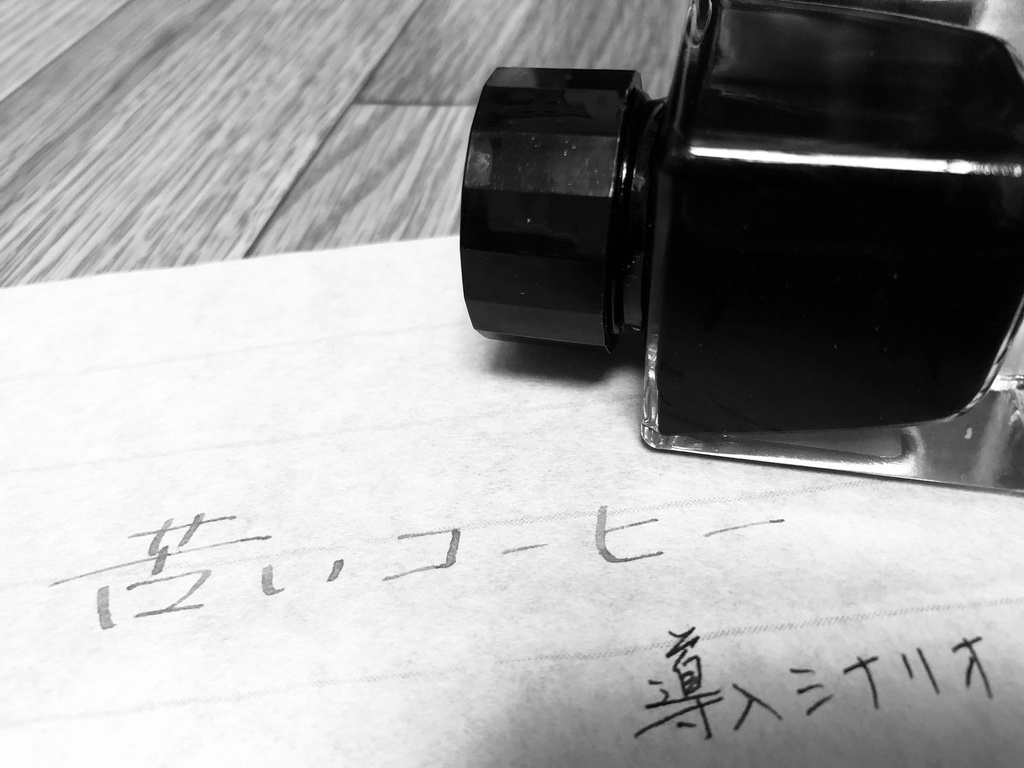 苦いコーヒー
導入シナリオ